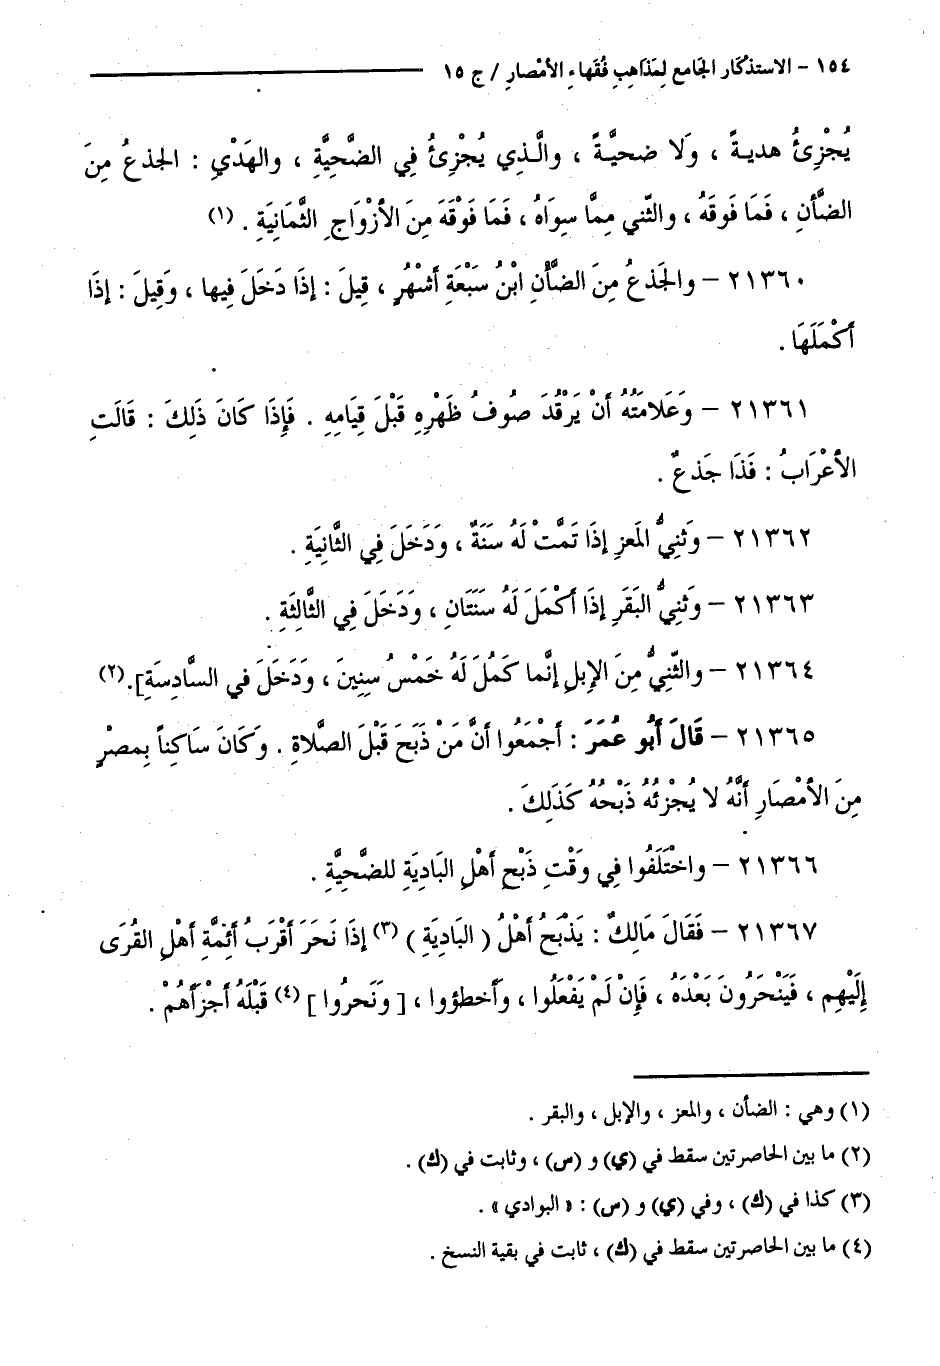 ١٥٤ – الاستذْكَار الجَامع لِمَذَاهِبِ فُقَهاءِ الأمْصارِ / ج ١٥
يُجْزِئُ هديـةً ، وَلَا ضحيَّـةً ، والَّـذِي يُجْزِئُ فِي الضَّحِيَّةِ ، والهَدْيِ : الجذعُ مِنَ
الضَّأنِ ، فَمَا فَوقَهُ ، والثّني مِمَّا سِوَاهُ ، فَمَا فَوْقَهَ مِنَ الأزْوَاجِ الثَّمَانِيَةِ . (١)
٢١٣٦٠ – والجَذعُ مِنَ الضَّأنِ ابْنُ سَبْعَةِ أشْهُرٍ ، قِيلَ : إذَا دَخَلَ فِيها ، وَقِيلَ : إذَا
أكْمَلَهَا .
٢١٣٦١ – وَعَلامَتُهُ أنْ يَرْقُدَ صُوفُ ظَهْرِهِ قَبْلَ قِيَامِهِ . فَإِذَا كَانَ ذَلِكَ : قَالَتِ
الأعْرَابُ : فَذَا جَذعٌ .
٢١٣٦٢ – وَثَنِيُّ المَعزِ إذَا تَمَّتْ لَهُ سَنَةٌ ، وَدَخَلَ فِي الثَّانِيَةِ .
٢١٣٦٣ – وَثَنِيُّ البَقَرِ إذَا أكْمَلَ لَهُ سَنَتَانِ ، وَدَخَلَ فِي الثَّالِثَةِ .
٢١٣٦٤ – والثَّنِيُّ مِنَ الإبلِ إنَّما كَمُلَ لَهُ خَمْسُ سِنِينَ ، وَدَخَلَ في السَّادِسَةِ]. (٢)
٢١٣٦٥ – قَالَ أَبُو عُمَرَ : أجْمَعُوا أنَّ مَنْ ذَبَحَ قَبْلَ الصَّلاةِ . وَكَانَ سَاكِناً بِمصْرٍ
مِنَ الأمْصَارِ أنَّهُ لا يُجْزئُهُ ذَبْحُهُ كَذَلِكَ .
٢١٣٦٦ – واخْتَلَفُوا فِي وَقْتِ ذَبْحِ أهْلِ البَادِيَةِ للضَّحِيَّةِ .
٢١٣٦٧ – فَقَالَ مَالِكٌ : يَذْبَحُ أهْلُ ( البَادِيَةِ ) (٣) إذَا نَحَرَ أقْرَبُ أئِمَّةِ أهْلِ القُرَى
إِلَيْهِم ، فَيَنْحَرُونَ بَعْدَهُ ، فَإِنْ لَمْ يَفْعَلُوا ، وأخطؤوا ، [ وَنَحرُوا ] (٤) قَبْلَهُ أجْزَأهُمْ .
(١) وهي : الضأن ، والمعز ، والإبل ، والبقر .
(٢) ما بين الحاصرتين سقط في (ي) و (س) ، وثابت في (ك) .
(٣) كذا في (ك) ، وفي (ي) و (س) : « البوادي » .
(٤) ما بين الحاصرتين سقط في (ك) ، ثابت في بقية النسخ .